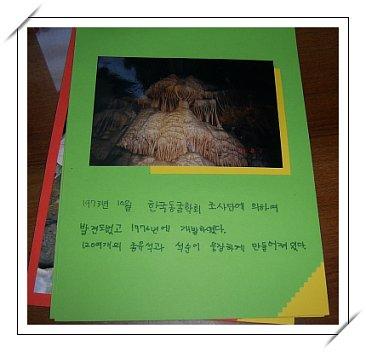 1973년 10월 한국동굴학회 조사단에 의하여
발견되었고 1976년에 개발하였다.
120여개의 종유석과 석순이 웅장하게 만들어져 있다.